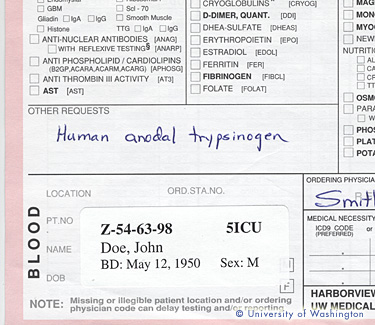 GBM Scl - 70
Gliadin IgA IgG Smooth Muscle
Histone TTG IgA IgG
ANTI-NUCLEAR ANTIBODIES [ANAG]
WITH REFLEXIVE TESTING§ [ANARP]
ANTI PHOSPHOLIPID / CARDIOLIPINS
(B2GP,ACARA,ACARM,ACARG) [APHOSG]
ANTI THROMBIN III ACTIVITY [AT3]
AST [AST]
CRYOGLOBULINS [CRYOG]
D-DIMER, QUANT. [DDI]
DHEA-SULFATE [DHEAS]
ERYTHROPOIETIN [EPO]
ESTRADIOL [EDOL]
FERRITIN [FER]
FIBRINOGEN [FIBCL]
FOLATE [FOLAT]
OTHER REQUESTS
Human anodal trypsinogen
BLOOD
LOCATION ORD.STA.NO.
PT.NO Z-54-63-98 5ICU
NAME Doe, John
DOB BD: May 12, 1950 Sex: M
NOTE: Missing or illegible patient location and/or ordering
physician code can delay testing and/or reporting
ORDERING PHYSICIA
Smit
MEDICAL NECESSITY
ICD9 CODE or
(PREFERRED)
HARBORVIEW
UW MEDICAL
© University of Washington